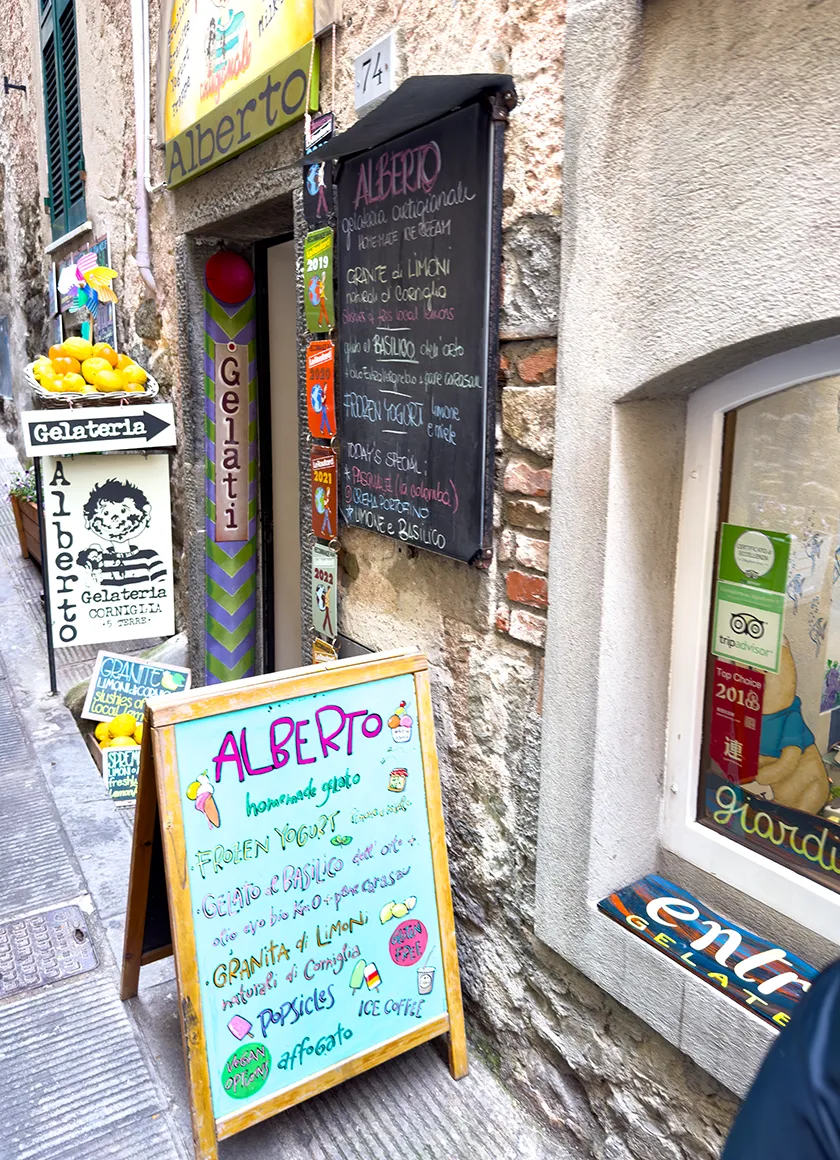 Alberto
74
Gelati
2019
2020
2021
2022
ALBERTO
gelateria artigianale
HOMEMADE ICE CREAM
GRANITE di LIMONI
naturali di Corniglia
slushies of local lemons
gelato al BASILICO dell'orto
FROZEN YOGURT limone
e miele
TODAY'S SPECIAL:
(la colomba)
CREMA PORTOFINO
LIMONE e BASILICO
Gelateria
Alberto
Gelateria
CORNIGLIA
·5 TERRE·
GRANITE
LIMONI di CORNIGLIA
slushies of
local
SPREM
LIMONI
fresh
ALBERTO
homemade gelato
·FROZEN YOGURT
·GELATO al BASILICO dell'orto +
olio evo bio Km0 + pane carasau
·GRANITA di LIMONI
naturali di Corniglia
GLUTEN
FREE
POPSICLES
ICE COFFEE
VEGAN
OPTIONS
affogato
tripadvisor
Top Choice
2018
連
giardi
entr
GELATE